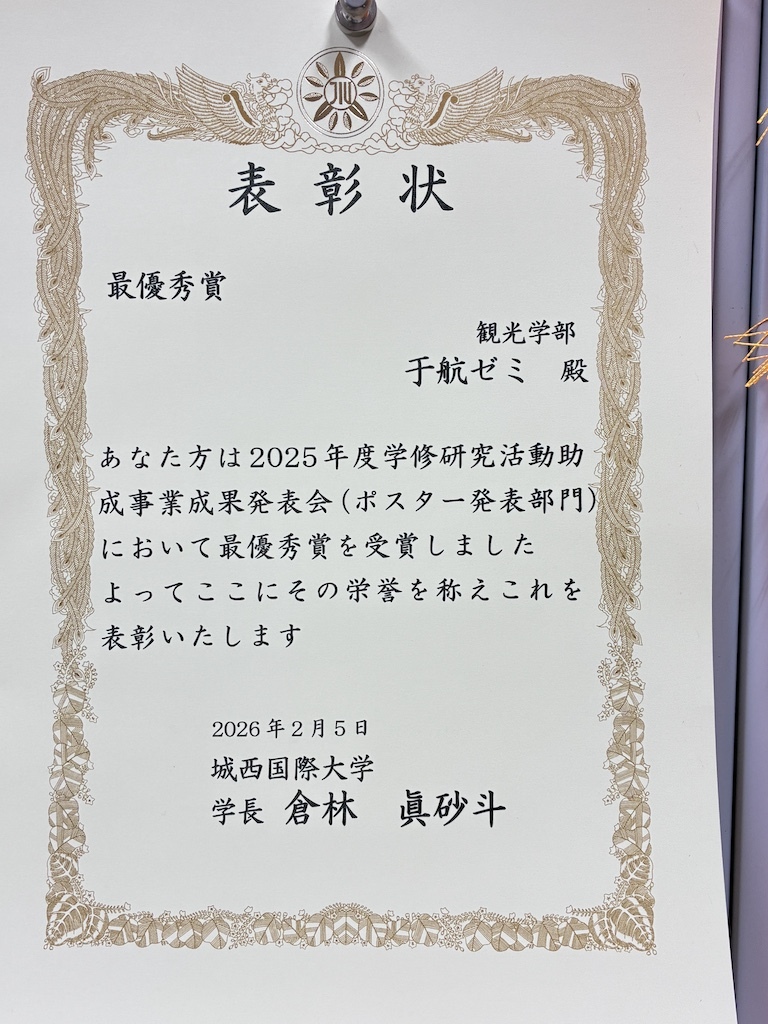 表彰状
最優秀賞
観光学部
于航ゼミ 殿
あなた方は2025年度学修研究活動助
成事業成果発表会(ポスター発表部門)
において最優秀賞を受賞しました
よってここにその栄誉を称えこれを
表彰いたします
2026年2月5日
城西国際大学
学長 倉林 眞砂斗